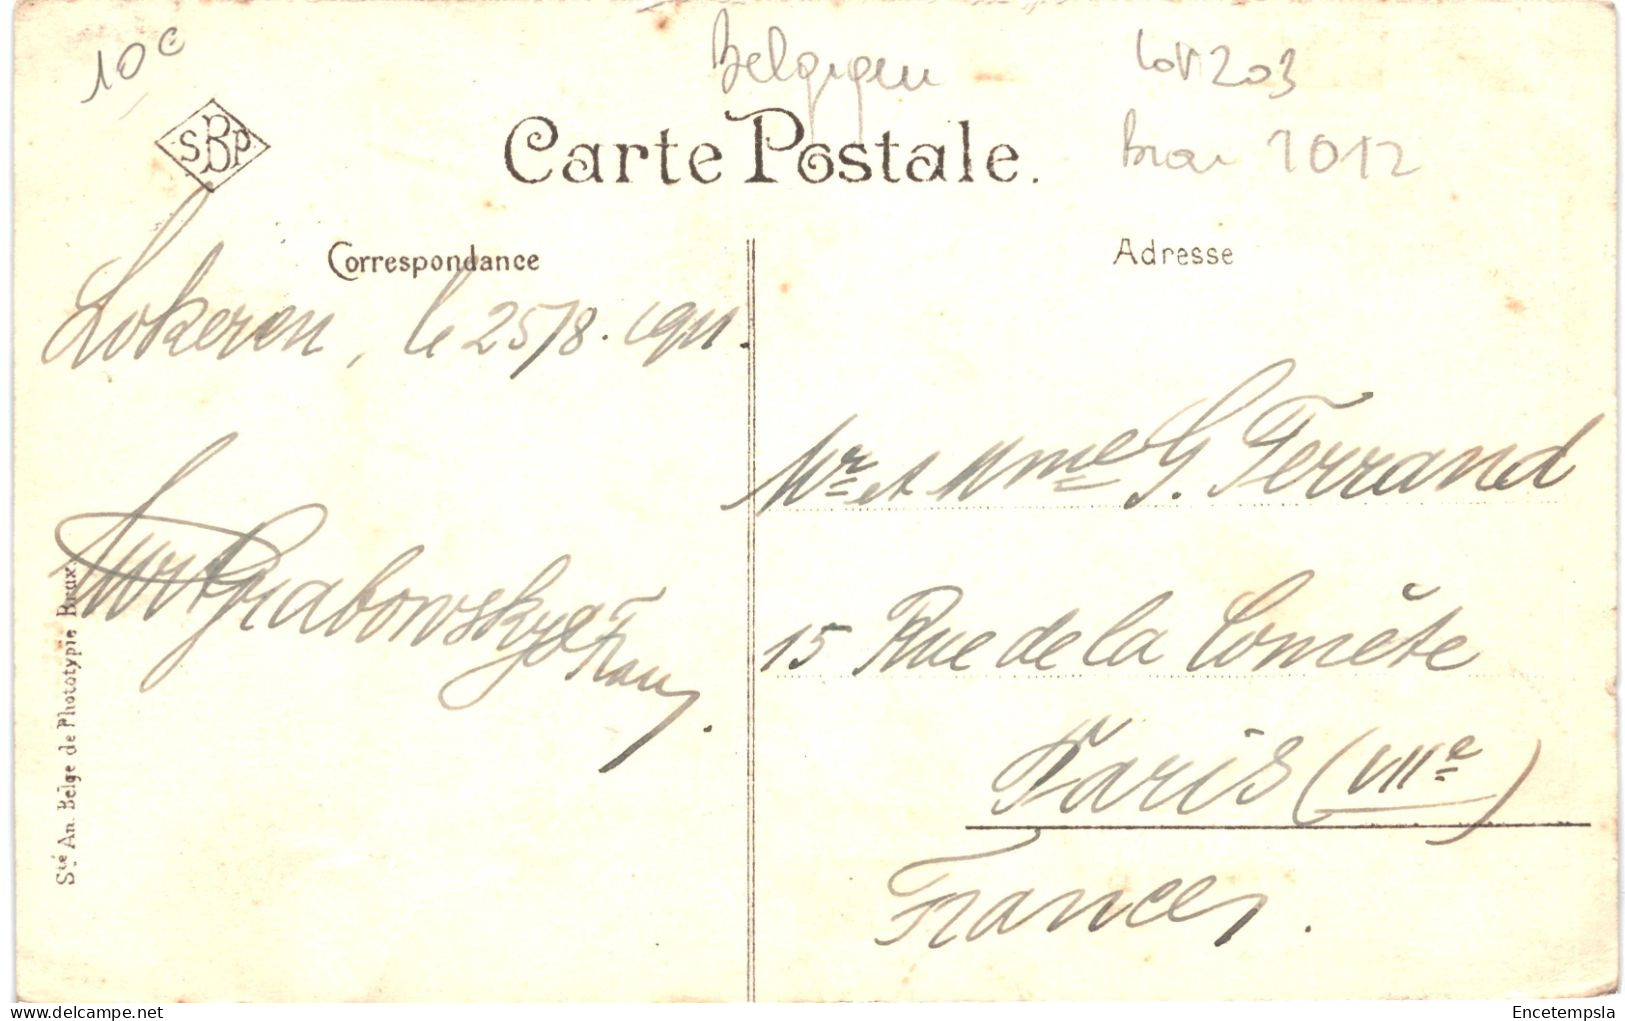 10 c
Belgigen
lot 203
1012
SBP
Carte Postale.
Correspondance
Adresse
Lokeren, le 25/8. 1911.
Mr et Mme G. Ferrand
Grabowsky &
15 Rue de la Comète
Paris (VIIe)
France.
Sté An. Belge de Phototypie Brux.
www.delcampe.net
Encetempsla